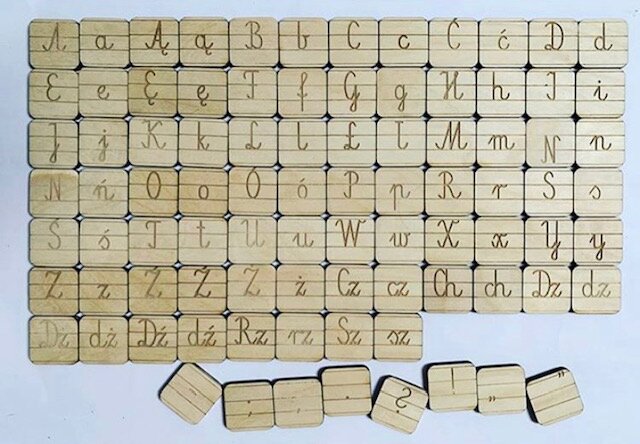 A a Ą ą B b C c Ć ć D d
E e Ę ę F f G g H h I i
J j K k L l Ł ł M m N n
Ń ń O o Ó ó P p R r S s
Ś ś T t U u W w X x Y y
Z z Ź Ź Ż ż Cz cz Ch ch Dz dz
Dż dż Dź dź Rz rz Sz sz
- ; , . ? ! „ ”